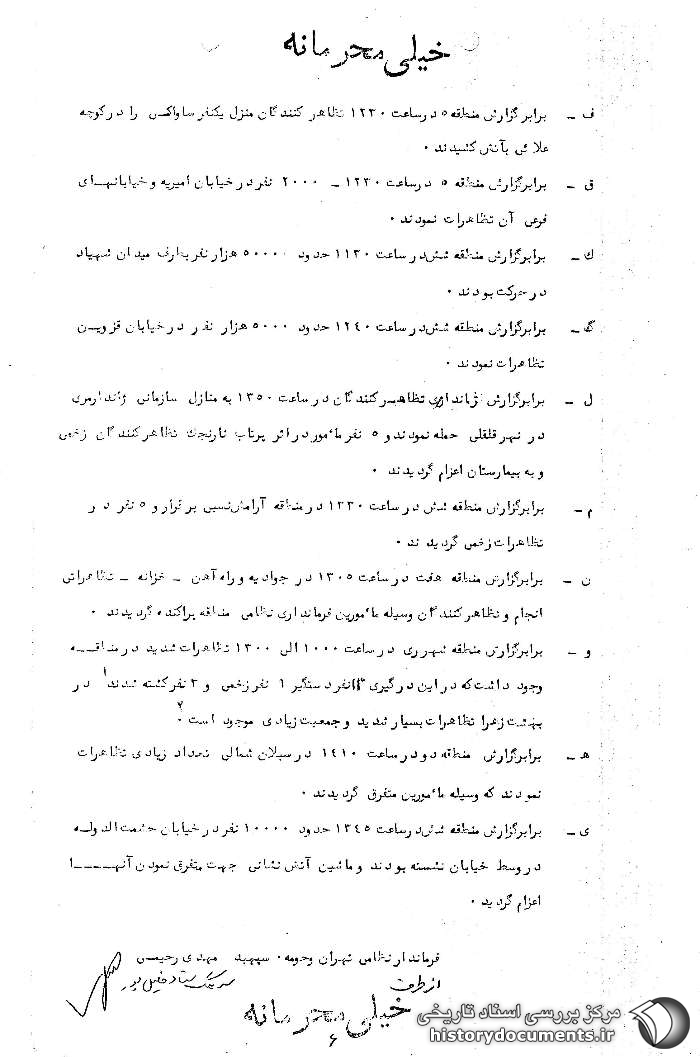 خیلی محرمانه
ف - برابر گزارش منطقه ۵ در ساعت ۱۲۳۰ تظاهر کنندگان منزل یکنفر ساواکی را در کوچه
علائی بآتش کشیدند ۰
ق - برابر گزارش منطقه ۵ در ساعت ۱۲۳۰ - ۲۰۰۰ نفر در خیابان امیریه و خیابانهای
فرعی آن تظاهرات نمودند ۰
ك - برابر گزارش منطقه شش در ساعت ۱۱۳۰ حدود هزار نفر بطرف میدان شهیاد
در حرکت بودند ۰
گ - برابر گزارش منطقه شش در ساعت ۱۲٤۰ حدود ۵۰۰۰ هزار نفر در خیابان قزوین
تظاهرات نمودند ۰
ل - برابر گزارش ژاندارمری تظاهر کنندگان در ساعت ۱۳۵۰ به منازل سازمانی ژاندارمری
در نهر قلقلی حمله نمودند و ۵ نفر مأمور در اثر پرتاب نارنجك تظاهر کنندگان زخمی
و به بیمارستان اعزام گردیدند ۰
م - برابر گزارش منطقه شش در ساعت ۱۳۳۰ در منطقه آرامش نسبی برقرار و ۵ نفر در
تظاهرات زخمی گردیدند ۰
ن - برابر گزارش منطقه هفت در ساعت ۱۳۰۵ در جوادیه و راه آهن - خزانه - تظاهراتی
انجام و تظاهر کنندگان وسیله مأمورین فرمانداری نظامی منطقه پراکنده گردیدند ۰
و - برابر گزارش منطقه شهرری در ساعت ۱۰۰۰ الی ۱۳۰۰ تظاهرات شدید در منطقه
وجود داشت که در این درگیری نفر دستگیر نفر زخمی و ۲ نفر کشته شدند در
بهشت زهرا تظاهرات بسیار شدید و جمعیت زیادی موجود است ۰
هـ - برابر گزارش منطقه دو در ساعت ۱٤۱۰ در سبلان شمالی تعداد زیادی تظاهرات
نمودند که وسیله مأمورین متفرق گردیدند ۰
ی - برابر گزارش منطقه شش در ساعت ۱۳٤۵ حدود ۱۰۰۰۰ نفر در خیابان حشمت الدوله
در وسط خیابان نشسته بودند و ماشین آتش نشانی جهت متفرق نمودن آنهـــا
اعزام گردید ۰
فرماندار نظامی تهران و حومه ۰ سپهبد مهدی رحیمی
از طرف سرهنگ ستاد
خیلی محرمانه
۶
مرکز بررسی اسناد تاریخی
historydocuments.ir